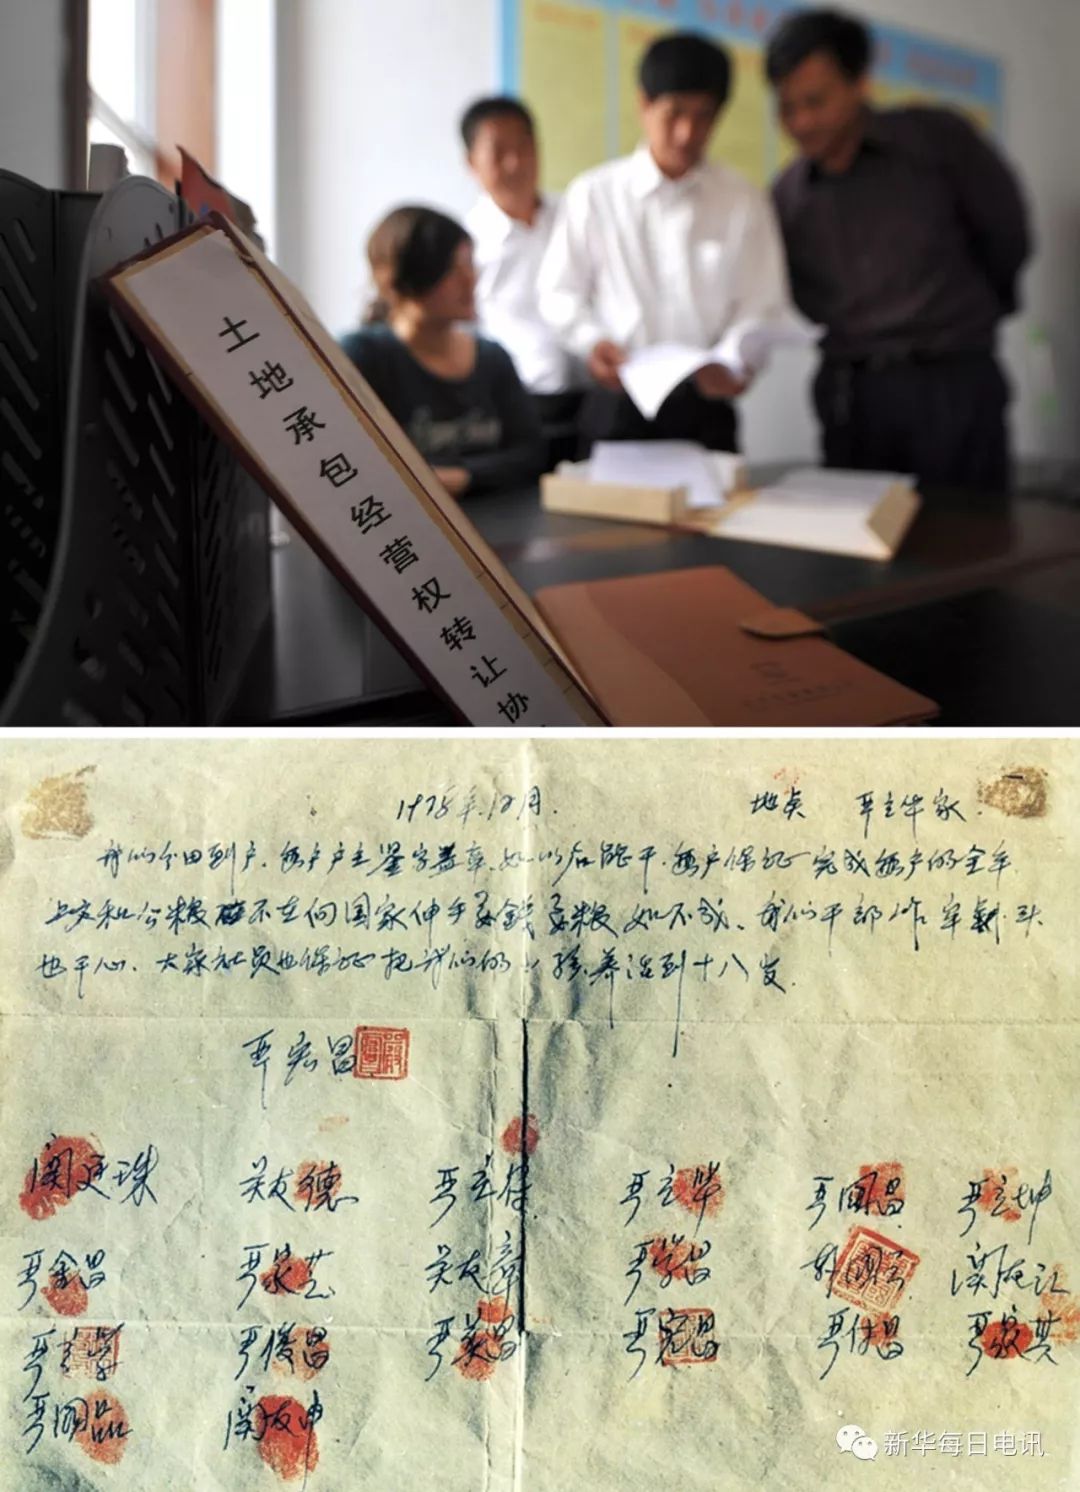 土地承包经营权转让协
1978年12月. 地点 严立华家
我们分田到户.每户户主鉴字盖章.如以后能干.每户保证完成每户的全年
上交和公粮.不在向国家伸手要钱要粮.如不成.我们干部作牢剎头
也干心.大家社员也保证把我们的小孩养活到十八岁.
严宏昌
关廷珠 关友德 严立符 严立华 严国昌 严立坤
严金昌 严家芝 关友章 严学昌 韩国云 关友江
严立学 严俊昌 严美昌 严宏昌 严付昌 严家其
严国品 关友申
新华每日电讯